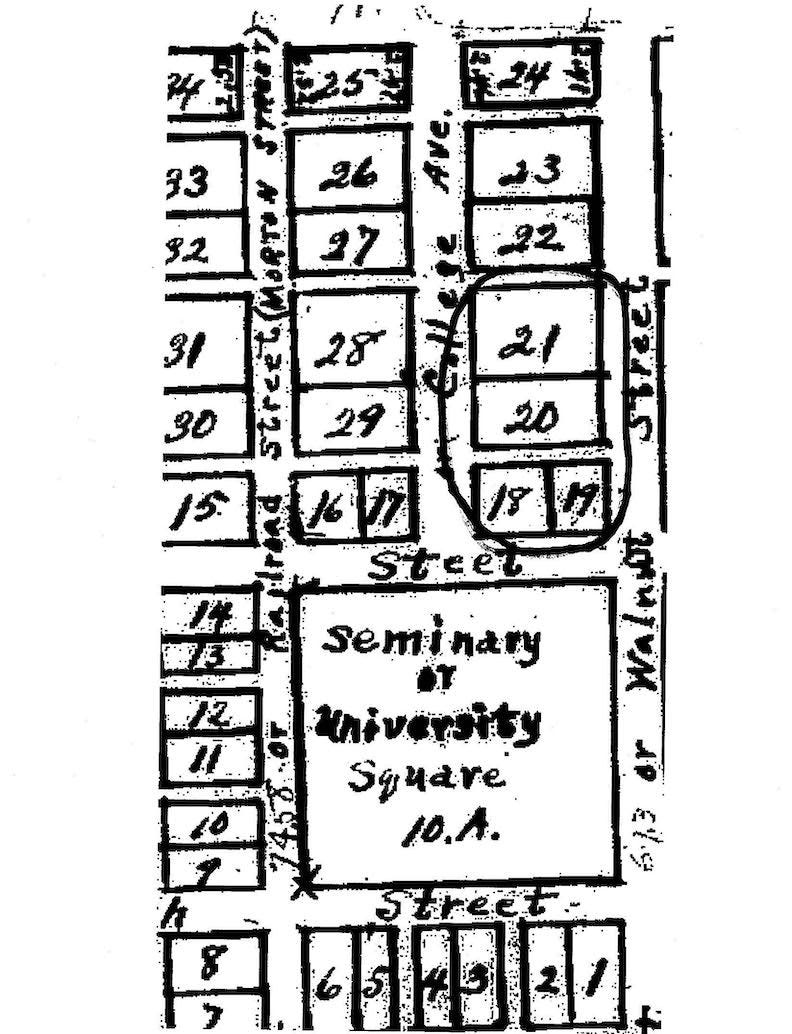 34
25
24
33
26
23
32
27
22
31
28
21
30
29
20
15
16
17
18
19
Railroad Street (MORTON STREET)
College AVE.
or Walnut Street
Steet
14
13
12
11
10
9
Seminary
or
University
Square
10.A.
7458 or
673
h
Street
8
7
6
5
4
3
2
1
t.